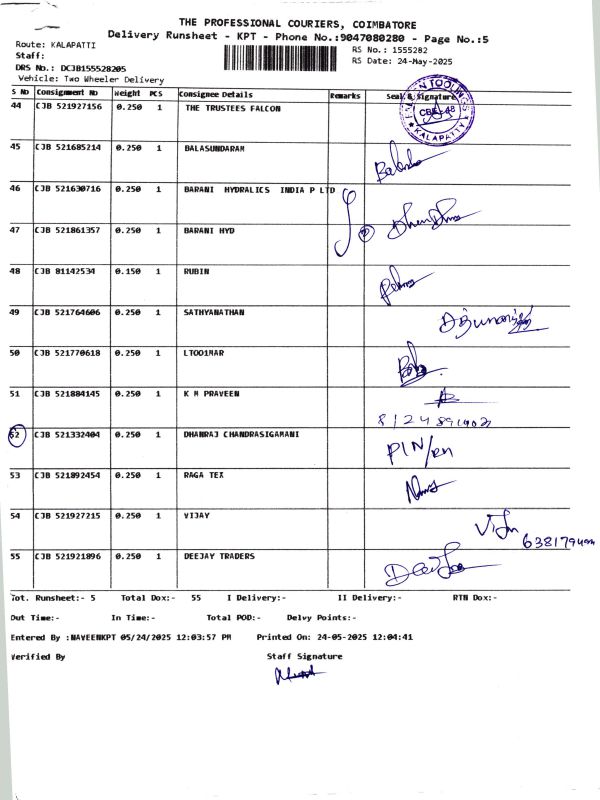 THE PROFESSIONAL COURIERS, COIMBATORE
Delivery Runsheet - KPT - Phone No.:9047080280 - Page No.:5
Route: KALAPATTI
RS No.: 1555282
Staff:
RS Date: 24-May-2025
DRS No.: DCJB155528205
Vehicle: Two Wheeler Delivery
S No Consignment No Weight PCS Consignee Details Remarks Seal & Signature
44 CJB 521927156 0.250 1 THE TRUSTEES FALCON
CBE-48
KALAPATTY
45 CJB 521685214 0.250 1 BALASUNDARAM
46 CJB 521630716 0.250 1 BARANI HYDRALICS INDIA P LTD
47 CJB 521861357 0.250 1 BARANI HYD
48 CJB 81142534 0.150 1 RUBIN
49 CJB 521764606 0.250 1 SATHYANATHAN
50 CJB 521770618 0.250 1 LTOO1MAR
51 CJB 521884145 0.250 1 K M PRAVEEN
52 CJB 521332404 0.250 1 DHANRAJ CHANDRASIGAMANI
53 CJB 521892454 0.250 1 RAGA TEX
54 CJB 521927215 0.250 1 VIJAY
55 CJB 521921896 0.250 1 DEEJAY TRADERS
Tot. Runsheet:- 5 Total Dox:- 55 I Delivery:- II Delivery:- RTN Dox:-
Out Time:- In Time:- Total POD:- Delvy Points:-
Entered By :NAVEENKPT 05/24/2025 12:03:57 PM Printed On: 24-05-2025 12:04:41
Verified By Staff Signature